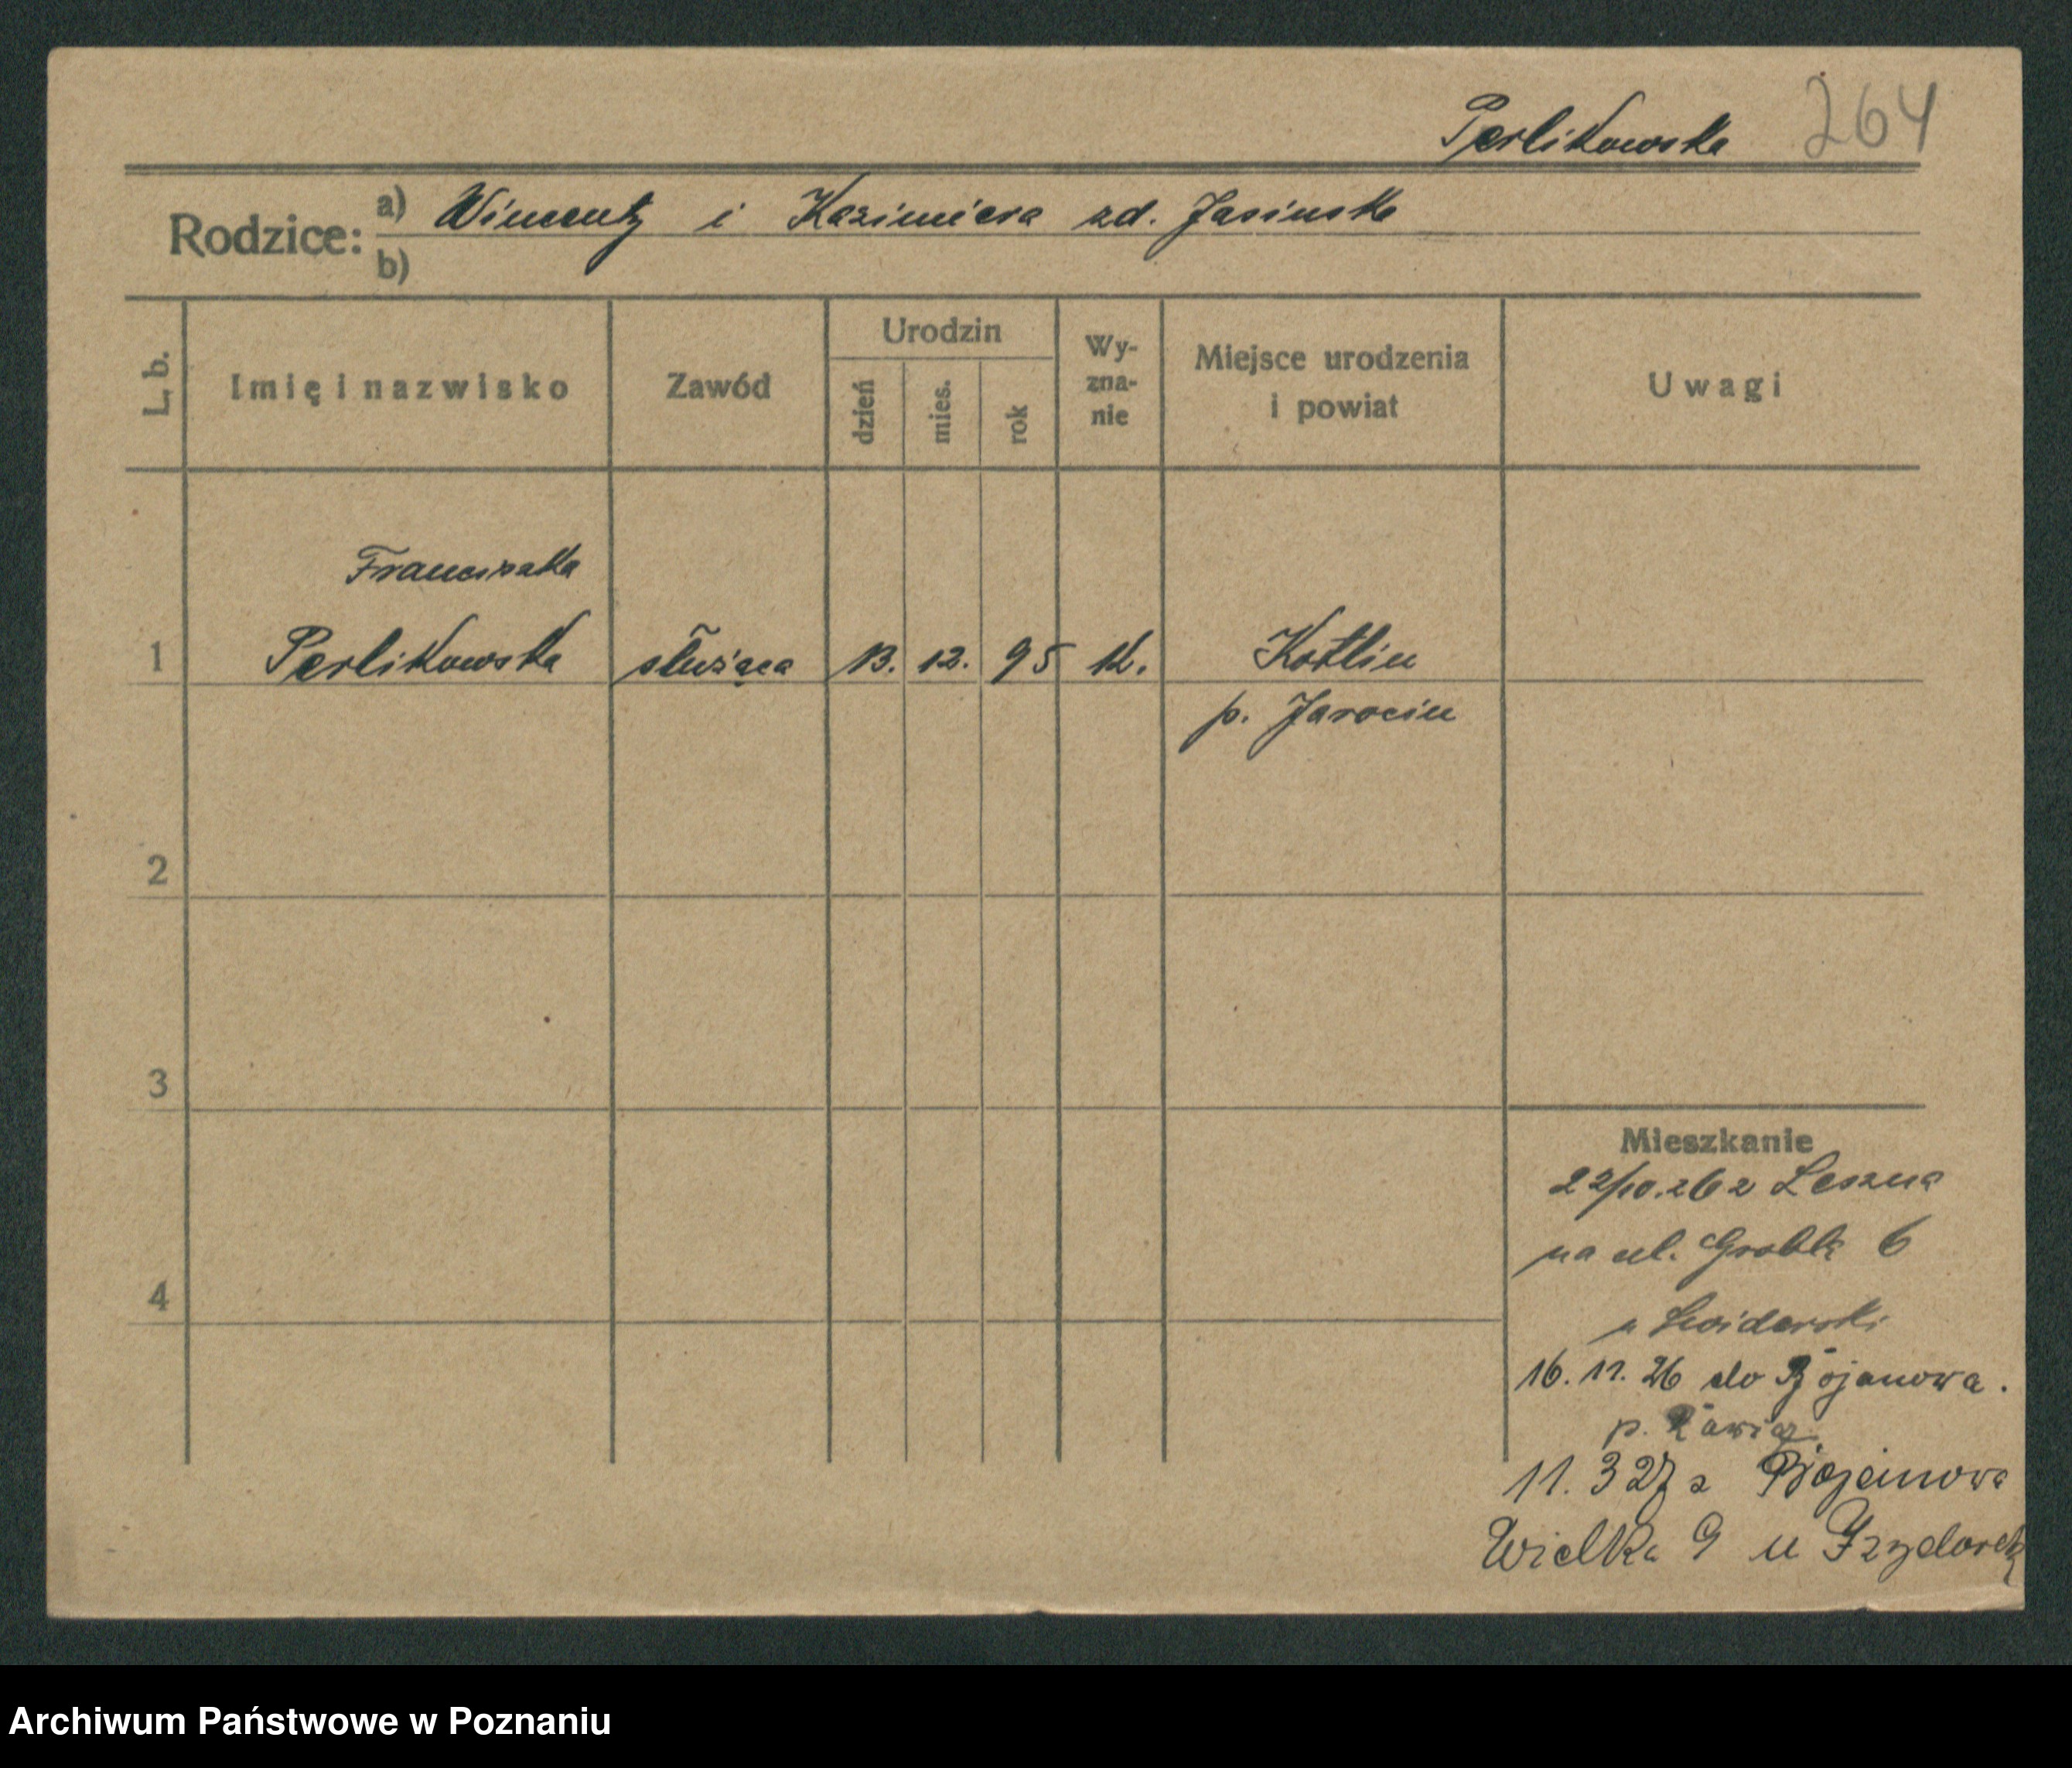 Perlikowska 264
Rodzice: a) Wincenty i Kazimiera zd. Jasinska
b)
L. b.
Imię i nazwisko
Zawód
Urodzin
dzień
mies.
rok
Wy-
zna-
nie
Miejsce urodzenia
i powiat
Uwagi
Franciszka
1 Perlikowska służąca 13. 12. 95 K. Kotlin
p. Jarocin
2
3
4
Mieszkanie
22/10.26 z Leszna
na ul. Grobla 6
u Swiderski
16. 11. 26 do Bojanowa.
p. Rawicz
11. 3 27 z Bojanowa
Wielka 9 u
Archiwum Państwowe w Poznaniu